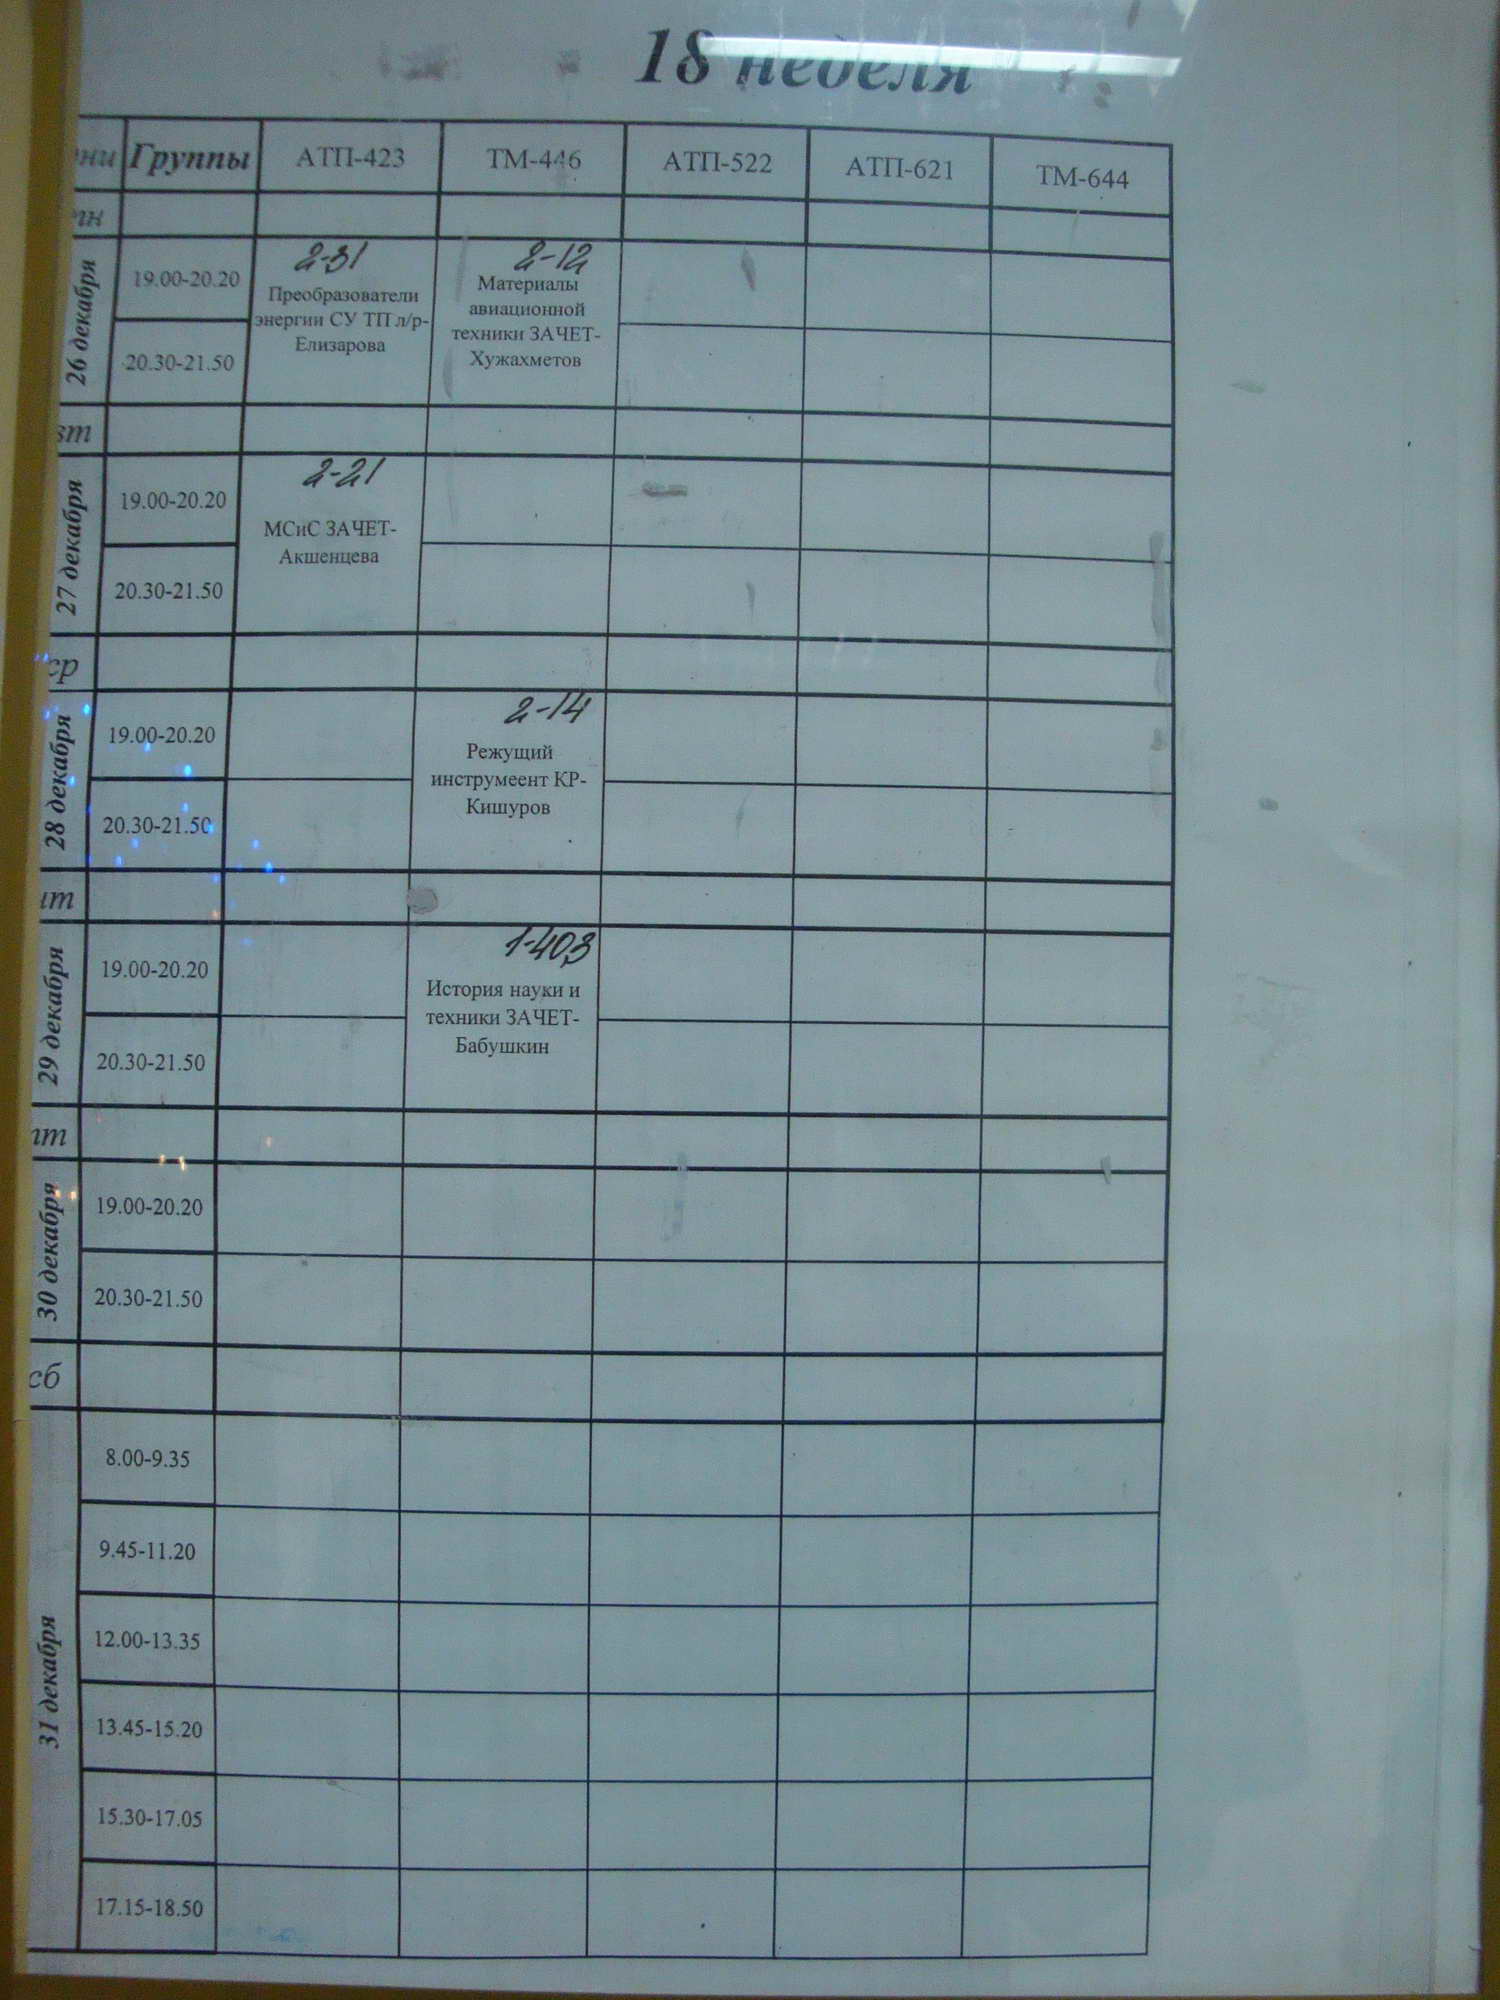 18 неделя
Группы АТП-423 ТМ-446 АТП-522 АТП-621 ТМ-644
26 декабря
19.00-20.20
20.30-21.50
2-31
Преобразователи
энергии СУ ТП л/р-
Елизарова
2-12
Материалы
авиационной
техники ЗАЧЕТ-
Хужахметов
27 декабря
19.00-20.20
20.30-21.50
2-21
МСиС ЗАЧЕТ-
Акшенцева
ср
28 декабря
19.00-20.20
20.30-21.50
2-14
Режущий
инструмеент КР-
Кишуров
29 декабря
19.00-20.20
20.30-21.50
1-403
История науки и
техники ЗАЧЕТ-
Бабушкин
пт
30 декабря
19.00-20.20
20.30-21.50
сб
31 декабря
8.00-9.35
9.45-11.20
12.00-13.35
13.45-15.20
15.30-17.05
17.15-18.50